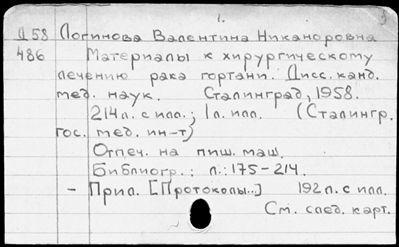 1.
Д 58 Логинова Валентина Никаноровна
486 Материалы к хирургическому
лечению рака гортани. Дисс. канд.
мед. наук. Сталинград, 1958.
214 л. с илл.; 1 л. илл. (Сталингр.
гос. мед. ин-т)
Отпеч. на пиш. маш.
Библиогр.: л.: 175-214.
- Прил. [Протоколы..] 192 л. с илл.
См. след. карт.